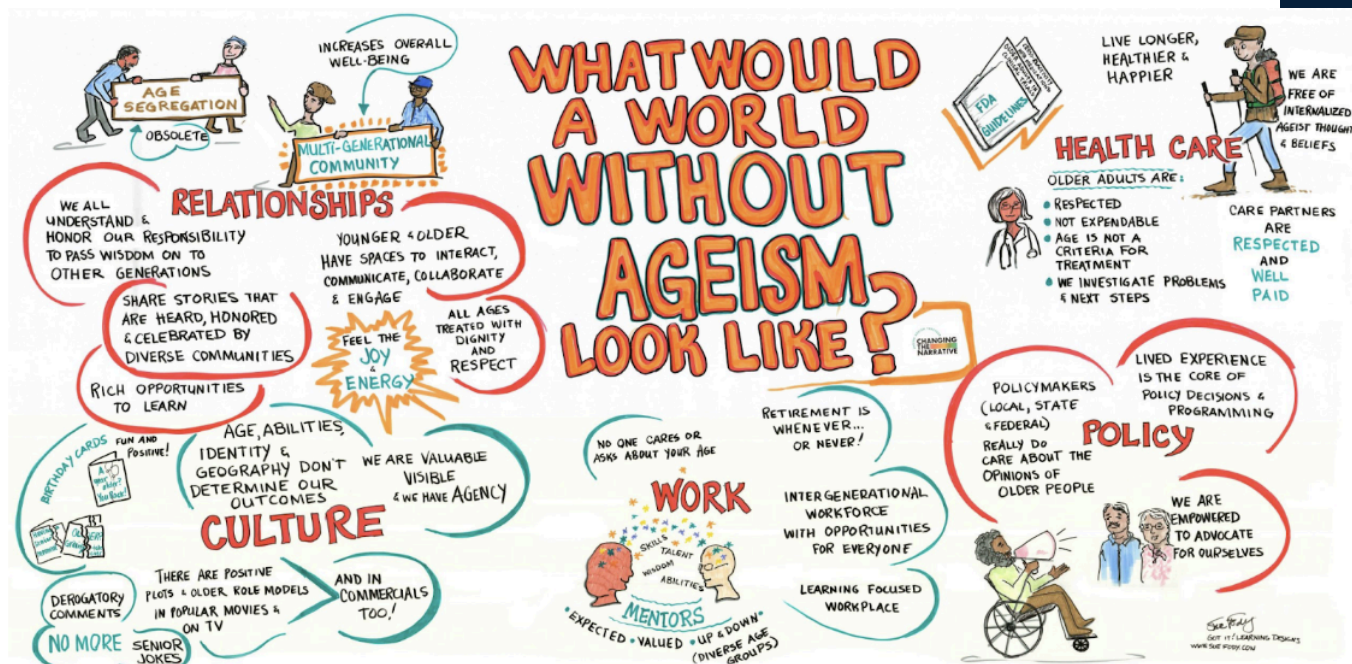 WHAT WOULD
A WORLD
WITHOUT
AGEISM
LOOK LIKE?
CHANGING
THE
NARRATIVE
AGE
SEGREGATION
OBSOLETE
INCREASES OVERALL
WELL-BEING
MULTI-GENERATIONAL
COMMUNITY
RELATIONSHIPS
WE ALL
UNDERSTAND &
HONOR OUR RESPONSIBILITY
TO PASS WISDOM ON TO
OTHER GENERATIONS
YOUNGER & OLDER
HAVE SPACES TO INTERACT,
COMMUNICATE, COLLABORATE
& ENGAGE
SHARE STORIES THAT
ARE HEARD, HONORED
& CELEBRATED BY
DIVERSE COMMUNITIES
FEEL THE
JOY
&
ENERGY
ALL AGES
TREATED WITH
DIGNITY
AND
RESPECT
RICH OPPORTUNITIES
TO LEARN
BIRTHDAY CARDS
FUN AND
POSITIVE!
AGE, ABILITIES,
IDENTITY &
GEOGRAPHY DON'T
DETERMINE OUR
OUTCOMES
WE ARE VALUABLE
VISIBLE
& WE HAVE AGENCY
CULTURE
DEROGATORY
COMMENTS
NO MORE SENIOR
JOKES
THERE ARE POSITIVE
PLOTS & OLDER ROLE MODELS
IN POPULAR MOVIES &
ON TV
AND IN
COMMERCIALS
TOO!
NO ONE CARES OR
ASKS ABOUT YOUR AGE
RETIREMENT IS
WHENEVER...
OR NEVER!
WORK
SKILLS
TALENT
WISDOM
ABILITIES
MENTORS
• EXPECTED • VALUED • UP & DOWN •
(DIVERSE AGE
GROUPS)
INTERGENERATIONAL
WORKFORCE
WITH OPPORTUNITIES
FOR EVERYONE
LEARNING FOCUSED
WORKPLACE
FDA
GUIDELINES
LIVE LONGER,
HEALTHIER &
HAPPIER
WE ARE
FREE OF
INTERNALIZED
AGEIST THOUGHT
& BELIEFS
HEALTH CARE
OLDER ADULTS ARE:
• RESPECTED
• NOT EXPENDABLE
• AGE IS NOT A
CRITERIA FOR
TREATMENT
• WE INVESTIGATE PROBLEMS
& NEXT STEPS
CARE PARTNERS
ARE
RESPECTED
AND
WELL
PAID
POLICYMAKERS
(LOCAL, STATE
& FEDERAL)
REALLY DO
CARE ABOUT THE
OPINIONS OF
OLDER PEOPLE
LIVED EXPERIENCE
IS THE CORE OF
POLICY DECISIONS &
PROGRAMMING
POLICY
WE ARE
EMPOWERED
TO ADVOCATE
FOR OURSELVES
Sue Fody
GOT IT! LEARNING DESIGNS
WWW.SUEFODY.COM